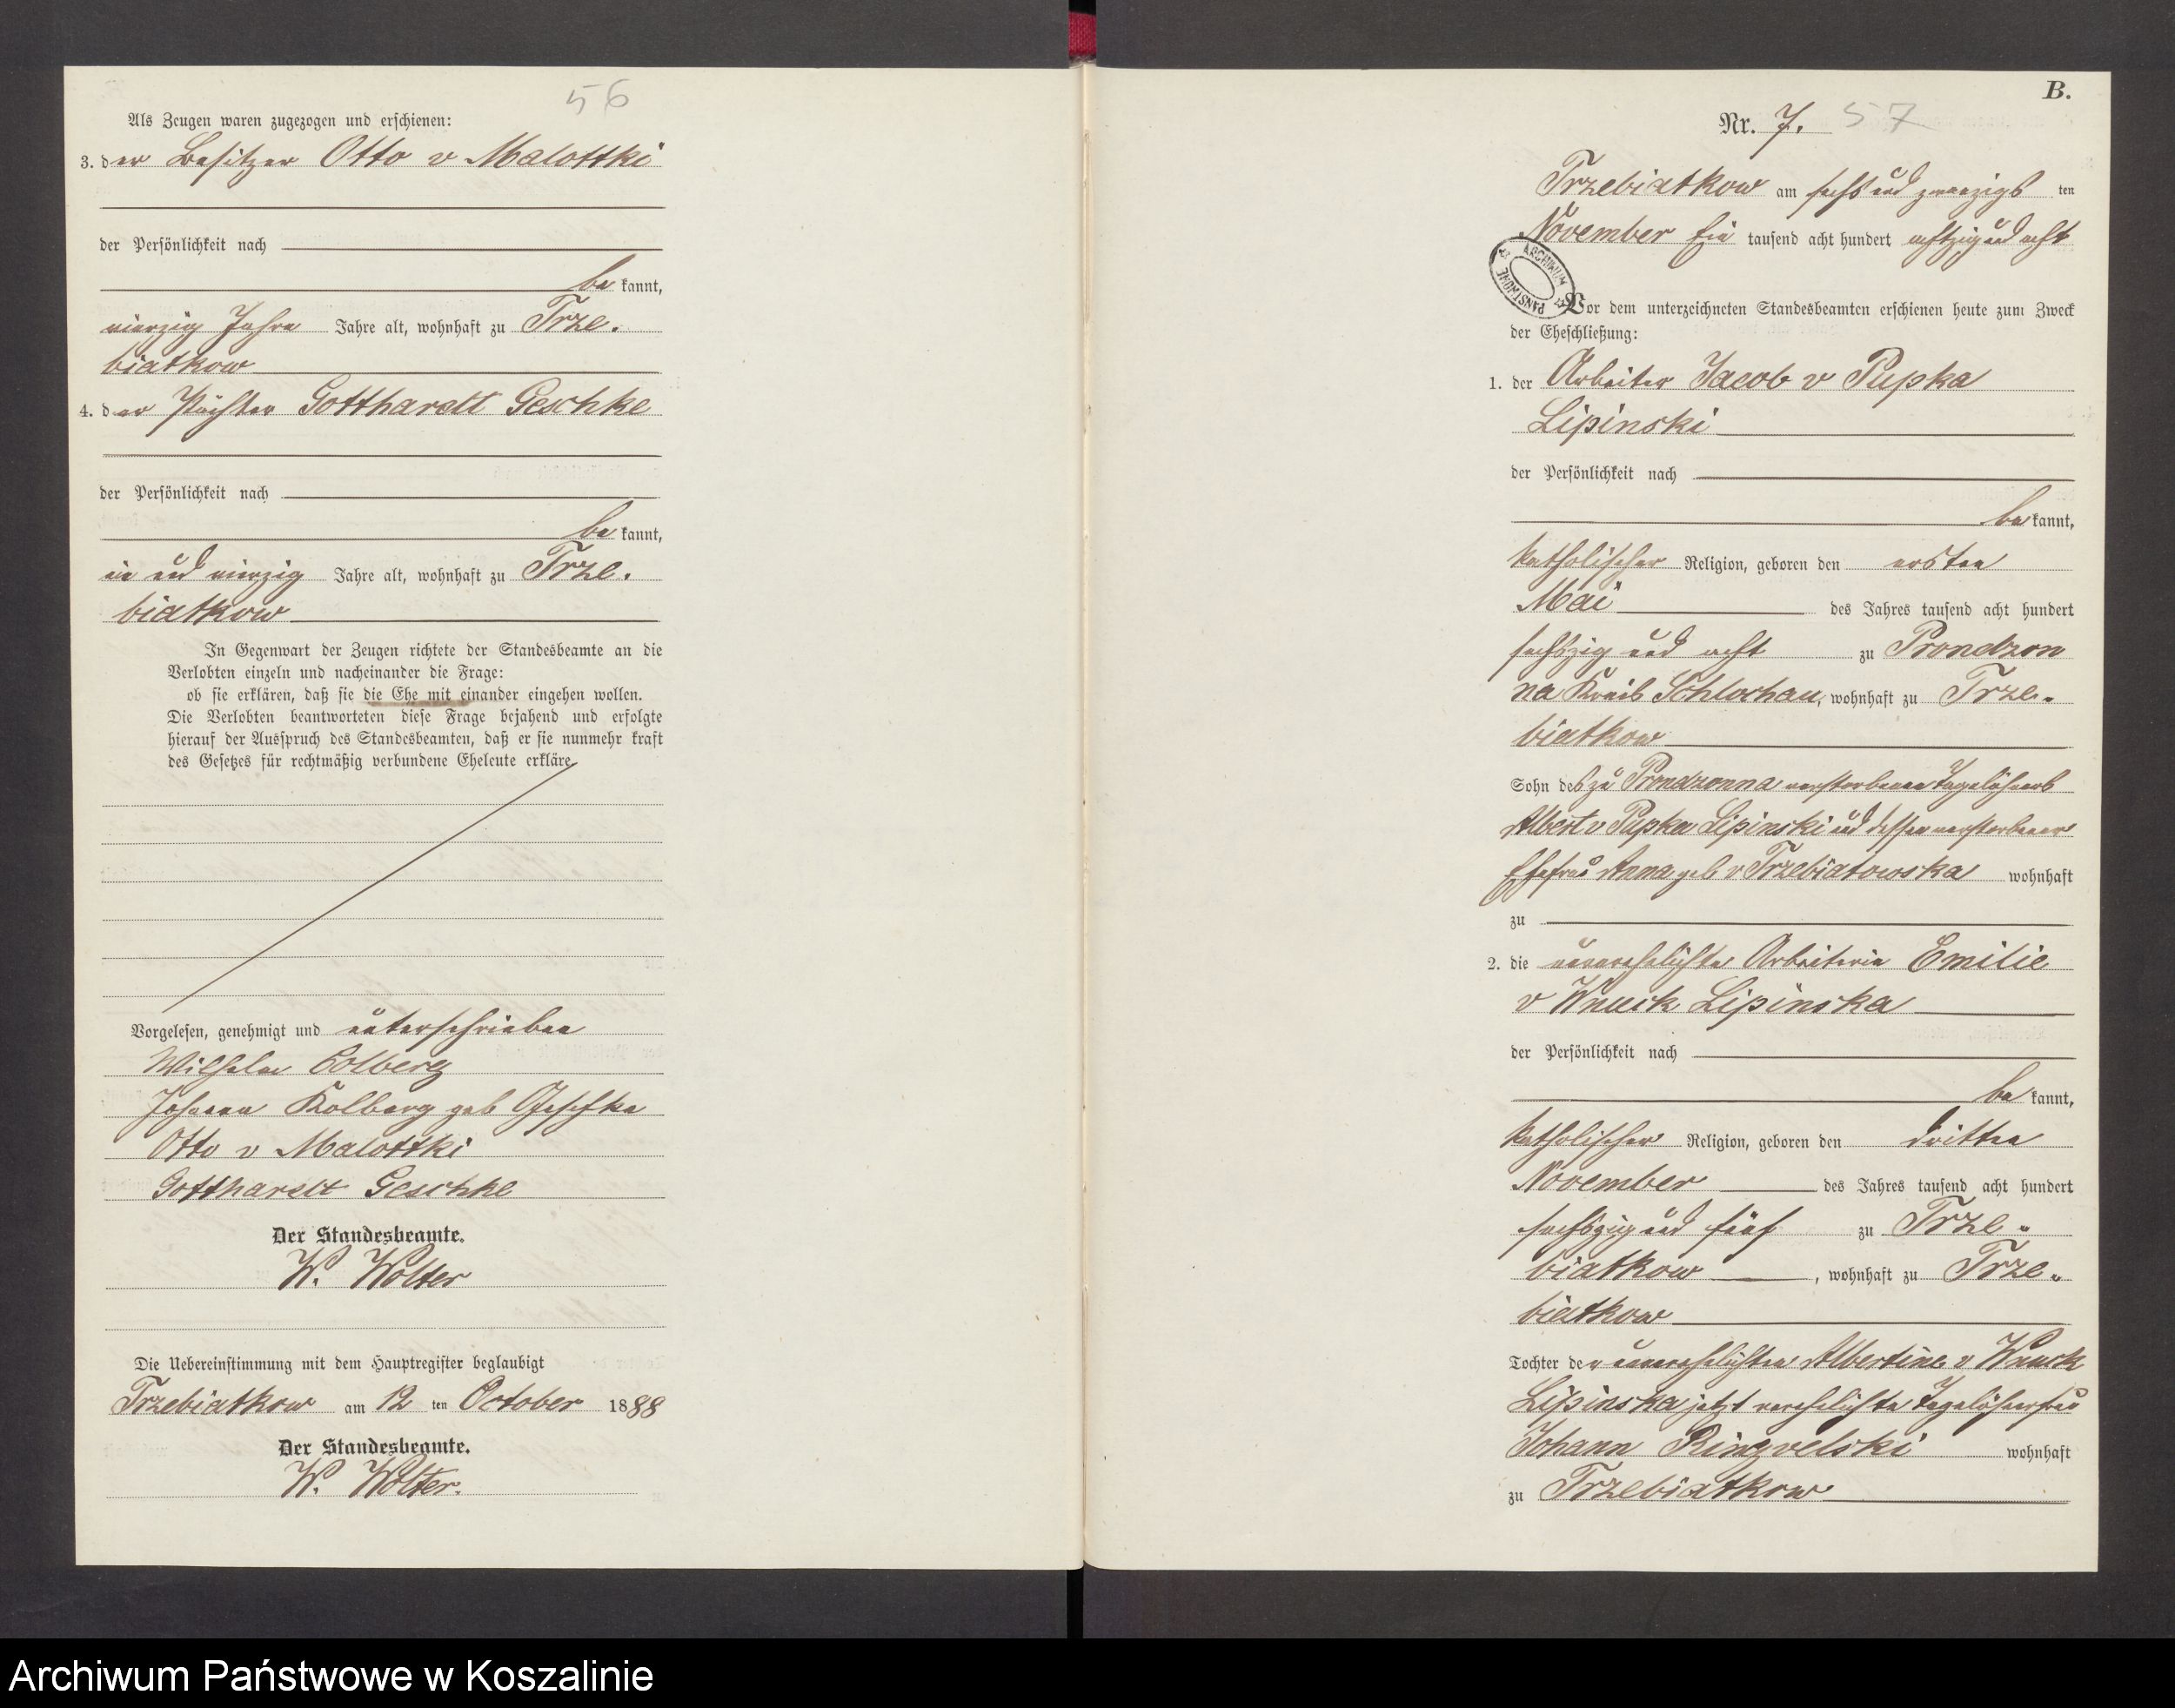 56
Als Zeugen waren zugezogen und erschienen:
3. der Besitzer Otto v Malottki
der Persönlichkeit nach
be kannt,
vierzig Jahre Jahre alt, wohnhaft zu Trze.
biatkow
4. der Pächter Gotthardt Geschke
der Persönlichkeit nach
be kannt,
ein und vierzig Jahre alt, wohnhaft zu Trze.
biatkow
In Gegenwart der Zeugen richtete der Standesbeamte an die
Verlobten einzeln und nacheinander die Frage:
ob sie erklären, daß sie die Ehe mit einander eingehen wollen.
Die Verlobten beantworteten diese Frage bejahend und erfolgte
hierauf der Ausspruch des Standesbeamten, daß er sie nunmehr kraft
des Gesetzes für rechtmäßig verbundene Eheleute erkläre.
Vorgelesen, genehmigt und unterschrieben
Wilhelm Colberg
Johanna Kolberg geb Geschke
Otto v Malottki
Gotthardt Geschke
Der Standesbeamte.
W. Wolter
Die Uebereinstimmung mit dem Hauptregister beglaubigt
Trzebiatkow am 12 ten October 1888
Der Standesbeamte.
W. Wolter.
B.
Nr. 7. 57
Trzebiatkow am sechs und zwanzigs ten
November Ein tausend acht hundert achtzig und acht
ARCHIWUM PAŃSTWOWE
Vor dem unterzeichneten Standesbeamten erschienen heute zum Zweck
der Eheschließung:
1. der Arbeiter Jacob v Pupka
Lipinski
der Persönlichkeit nach
be kannt,
katholischer Religion, geboren den ersten
Mai des Jahres tausend acht hundert
sechszig und acht zu Prondzon
na Kreis Schlochau, wohnhaft zu Trze-
biatkow
Sohn des zu Prondzonna verstorbenen Tagelöhners
Albert v Pupka Lipinski und dessen verstorbener
Ehefrau Anna geb v Trzebiatowska wohnhaft
zu
2. die unverehelichte Arbeiterin Emilie
v Wnuck Lipinska
der Persönlichkeit nach
be kannt,
katholischer Religion, geboren den dritten
November des Jahres tausend acht hundert
sechszig und fünf zu Trze-
biatkow, wohnhaft zu Trze-
biatkow
Tochter der unverehelichten Albertine v Wnuck
Lipinska jetzt verehelichte Tagelöhnerfrau
Johann Ringvelski wohnhaft
zu Trzebiatkow
Archiwum Państwowe w Koszalinie